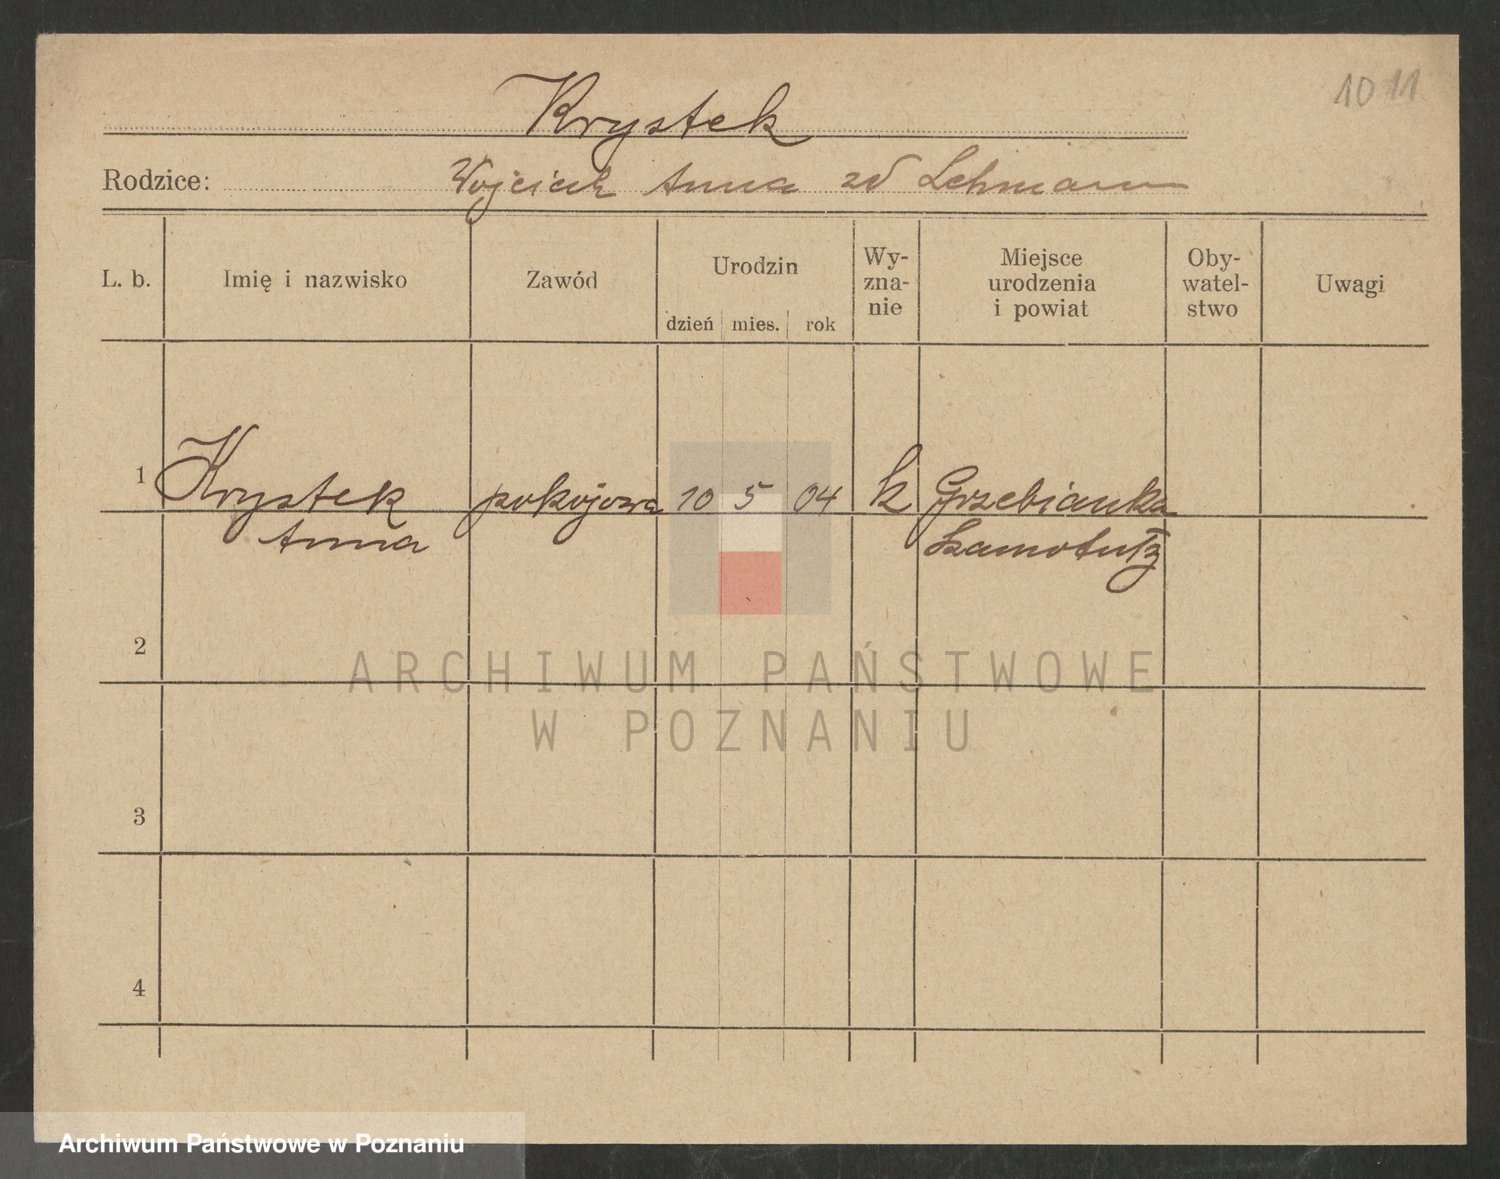 10 11
Krystek
Rodzice: Wojciech Anna zd Lehmann
L. b. Imię i nazwisko Zawód Urodzin dzień mies. rok Wy-zna-nie Miejsce urodzenia i powiat Oby-watel-stwo Uwagi
1 Krystek pokojowa 10 5 04 k Grzebianka
Anna
2
ARCHIWUM PAŃSTWOWE
W POZNANIU
3
4
Archiwum Państwowe w Poznaniu